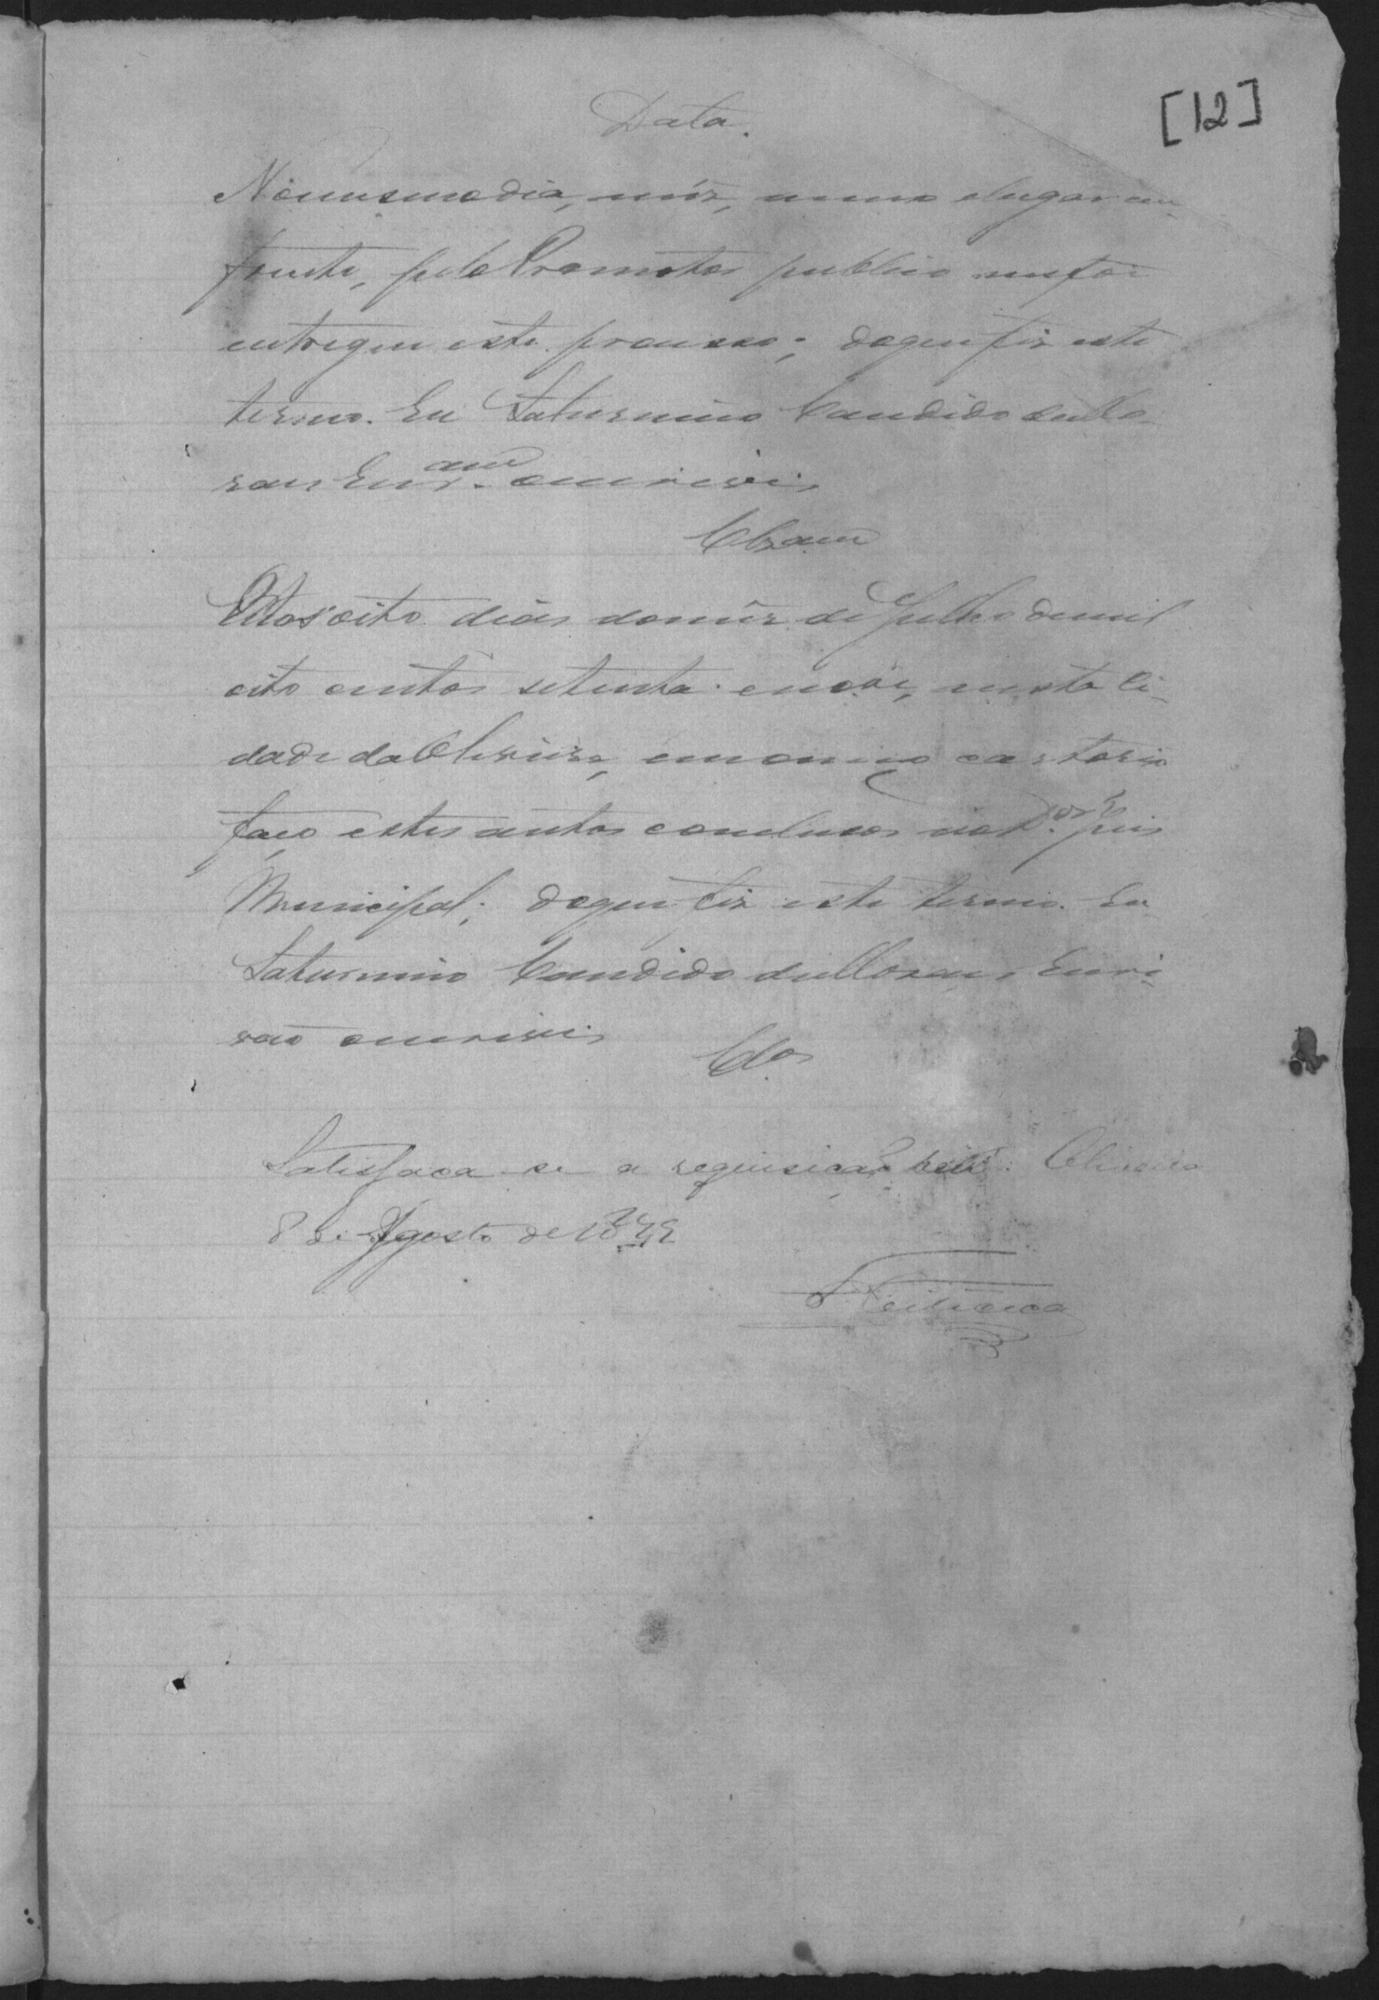 [12]
Data.
No mesmo dia, mez, anno e lugar em
frente, pelo Promotor publico me foi
entregue este processo; do que fiz este
termo. Eu Saturnino Candido de Mo-
raes Escr.am escrivi
Clzam
Aos oito dias do mez de Julho de mil
oito centos setenta e nove, nesta Ci-
dade da Oliveira, em meo cartorio
faço estes autos conclusos ao D.or Juis
Municipal; do que fiz este termo. Eu
Saturnino Candido de Moraes Escri-
vão escrivi
Clos
Satisfaça-se a requisição retro. Oliveira
8 de Agosto de 1879